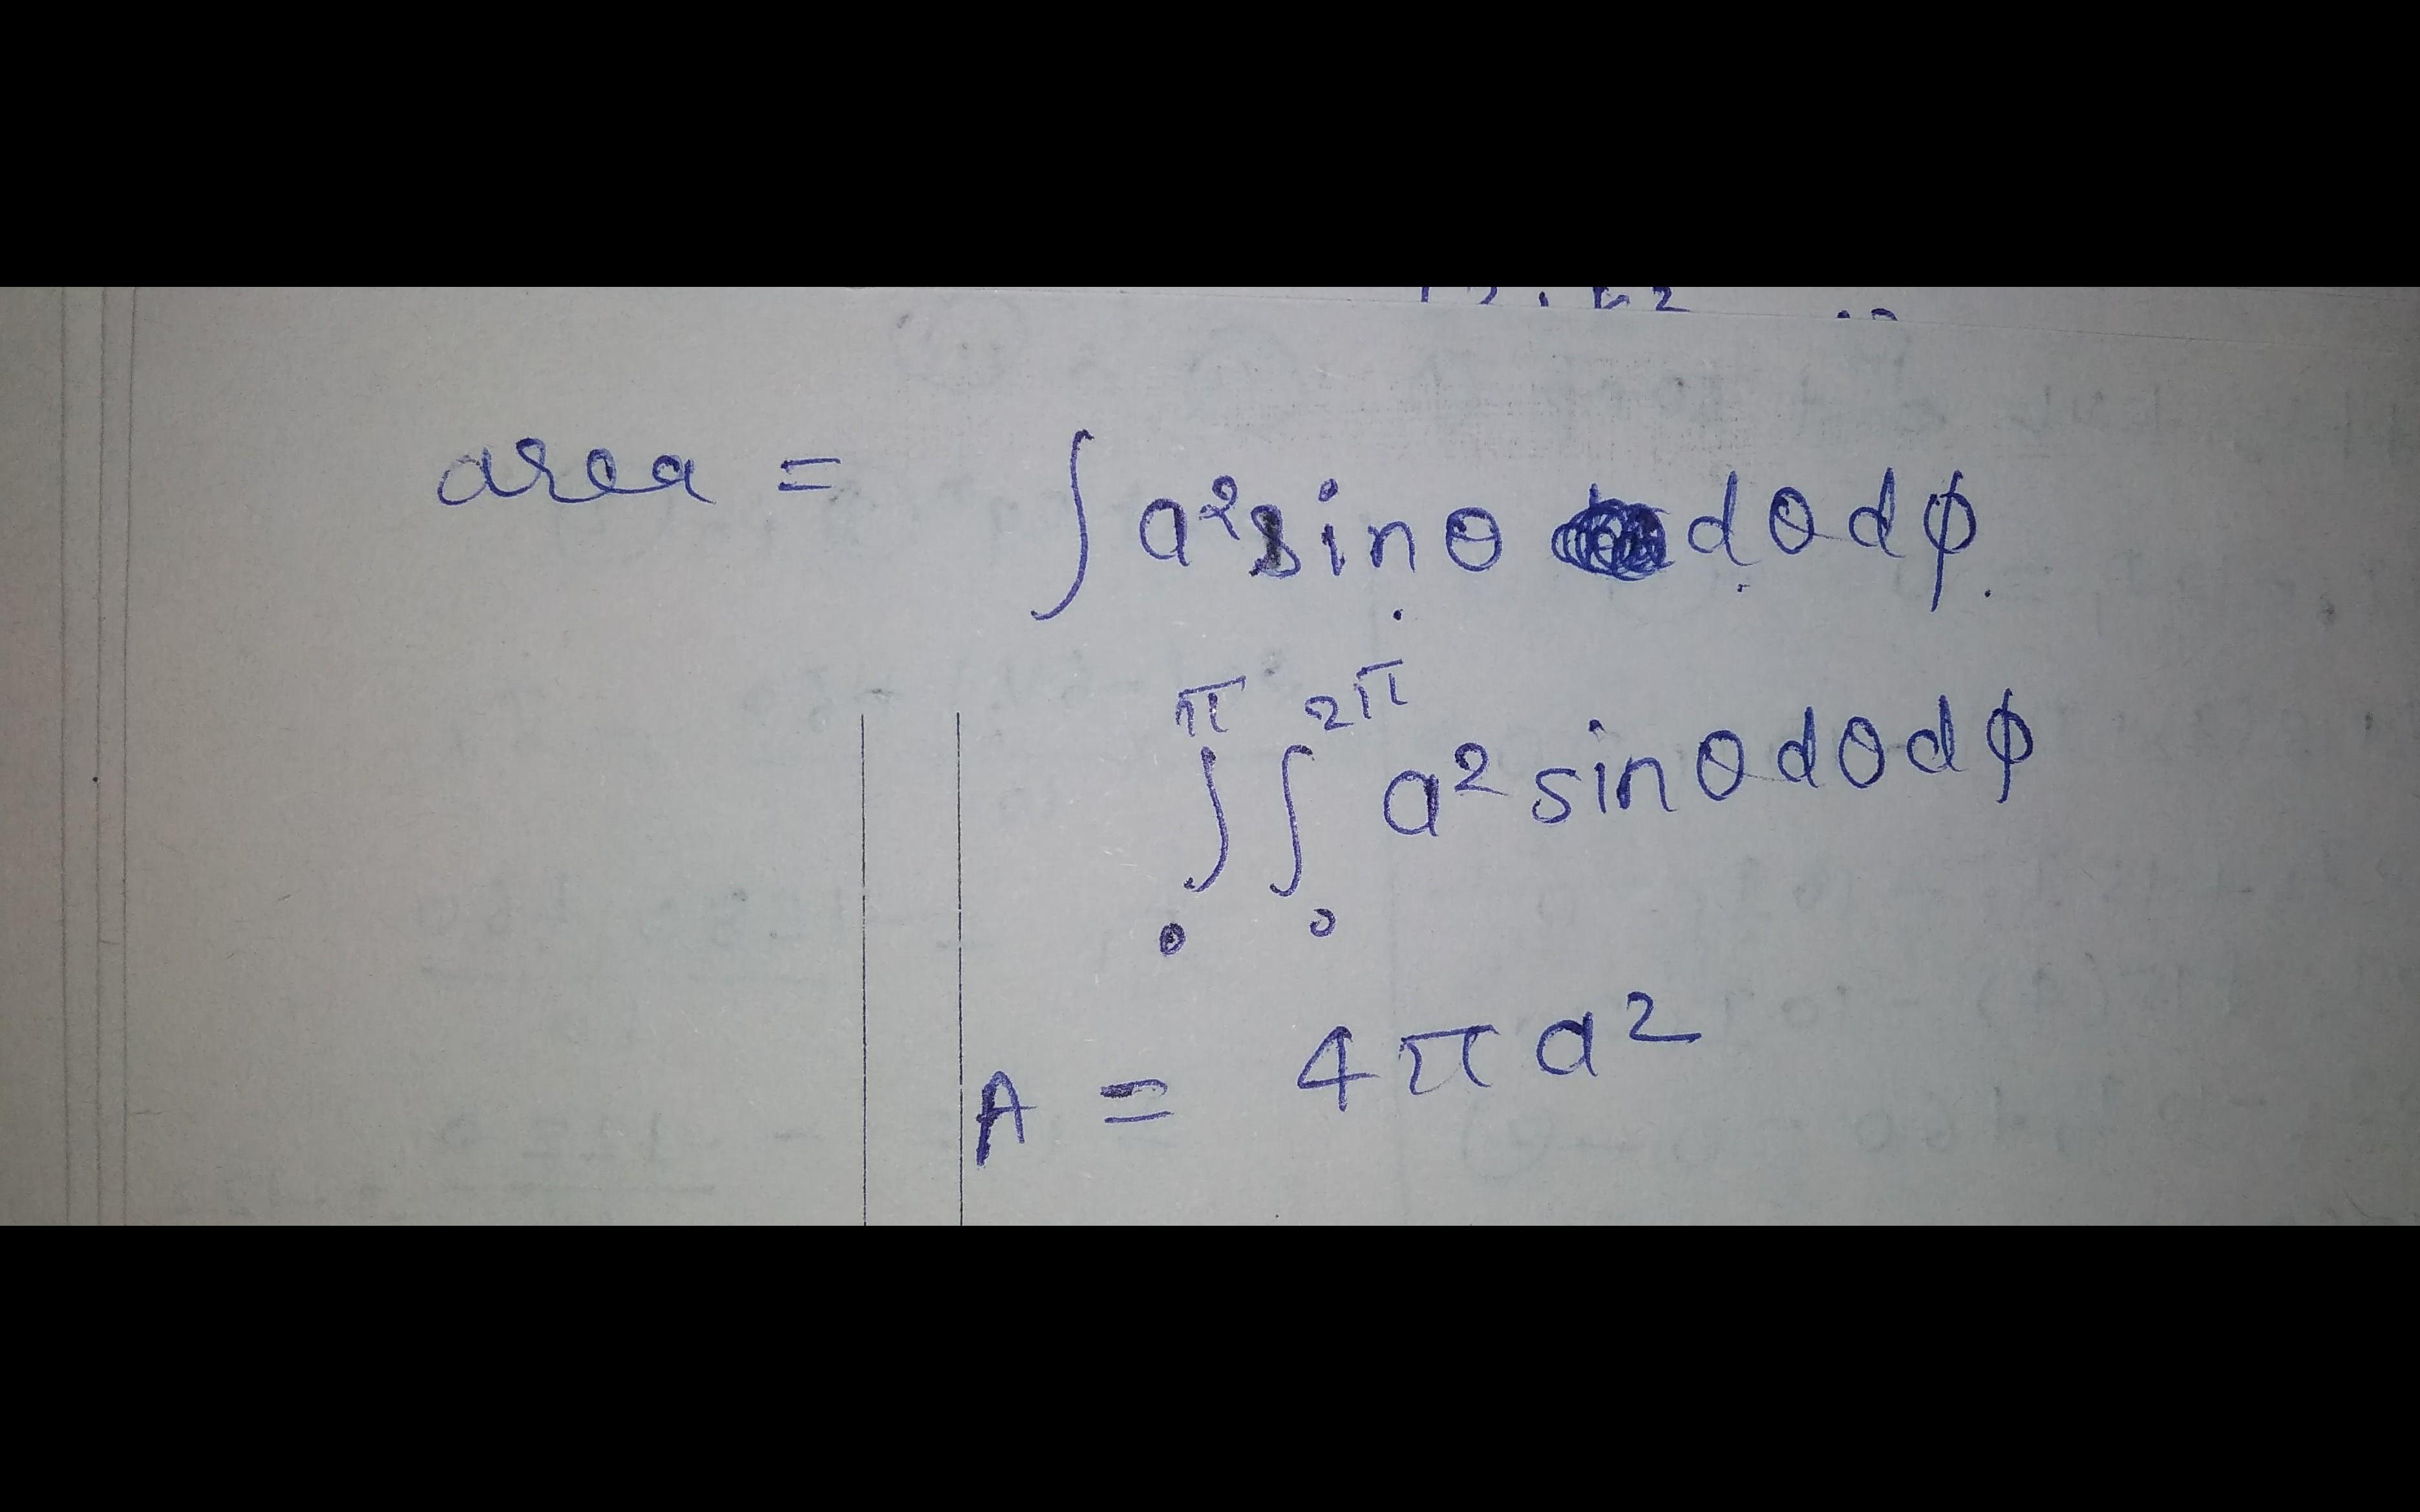 area = ∫ a² sin θ dθ dϕ.
π 2π
∫ ∫ a² sin θ dθ dϕ
0 0
A = 4πa²